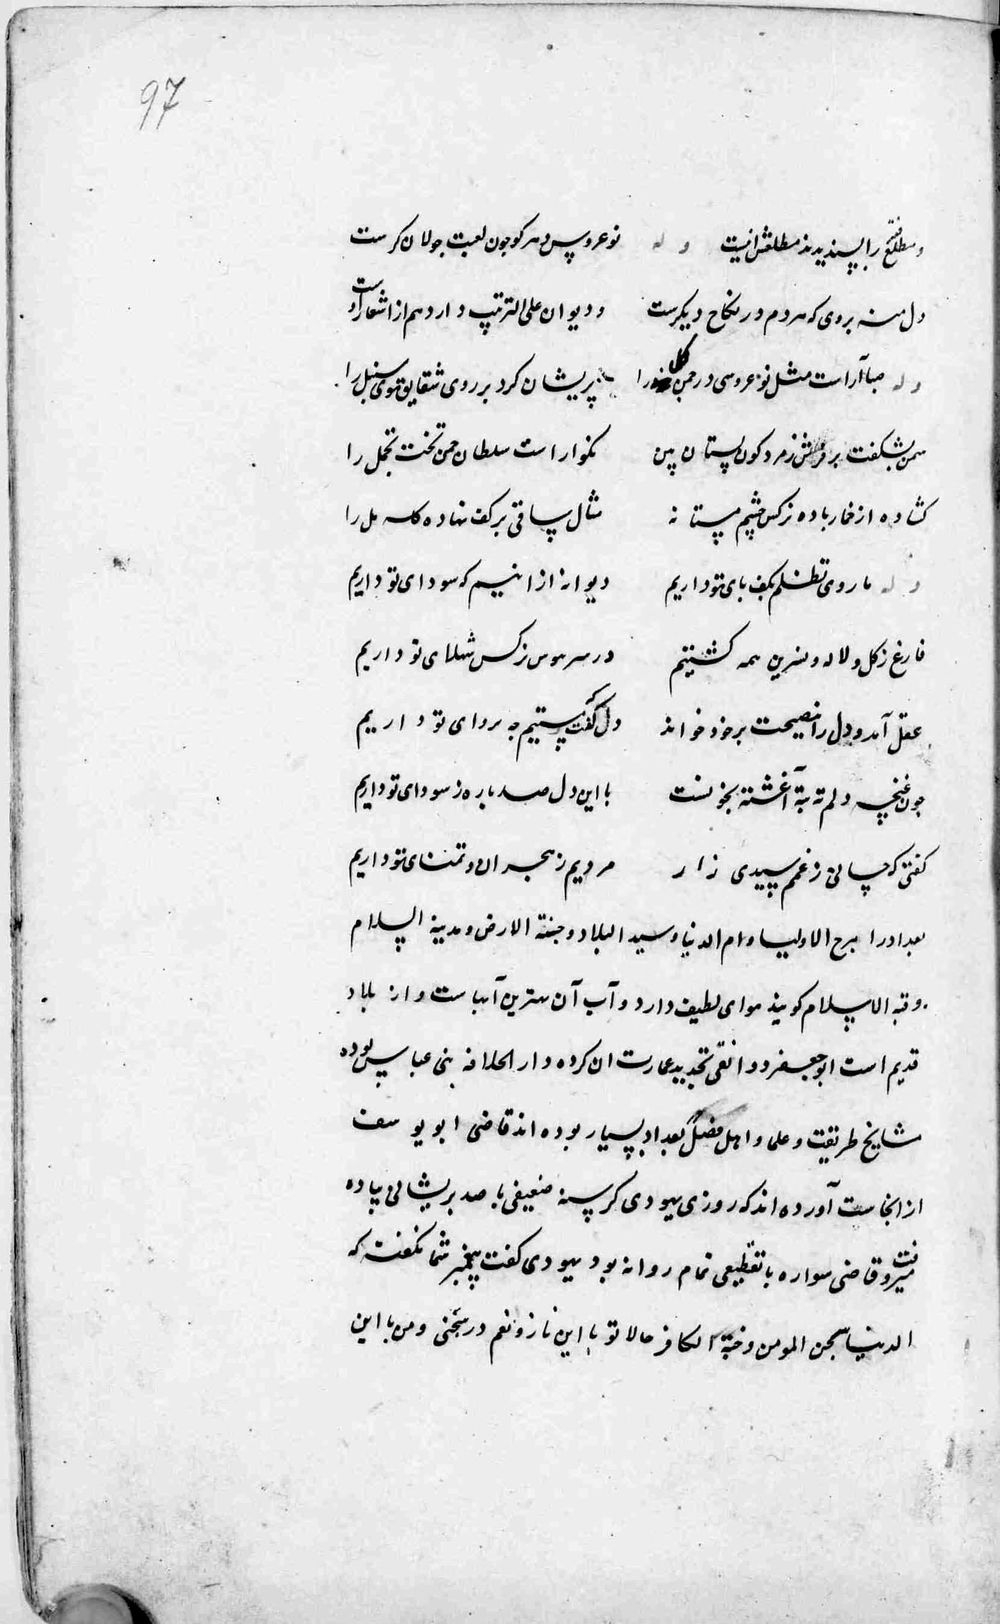 97
و مطلع را پسندیدند مطلعش اینست وله نوعروس دهر کو چون لعبت جولان کرست
دل منه بروی که هردم در نکاح دیکرست و دیوان علی الترتیب دارد هم از اشعار اوست
وله صبا آراست مثل نوعروسی در چمن کل را پریشان کرد بر روی شقایق موی سنبل را
سمن بشکفت بر فرش زمردکون بستان بین نکو اراست سلطان چمن تخت تجمل را
کشاده از خمار باده نرکس چشم مستانه مثال ساقی برکف نهاده کاسه مل را
وله ما روی تظلم بکف پای تو داریم دیوانه از انیم که سودای تو داریم
فارغ ز کل و لاله و نسرین همه کشتیم در سر هوس نرکس شهلای تو داریم
عقل آمد و دل را نصیحت بر خود خواند دل گفت که مستیم چه پروای تو داریم
چون غنچه دلم ته بته آغشته بخونست با این دل صد پاره ز سودای تو داریم
کفتی که چسانی ز غمم سیدی زار مردیم ز هجران و تمنای تو داریم
بغداد را برج الاولیا و ام الدنیا و سید البلاد و جنة الارض و مدینة السلام
و قبه الاسلام کویند هوای لطیف دارد و آب آن بهترین آبهاست و از بلاد
قدیم است ابو جعفر دوانقی تجدید عمارت ان کرده دار الخلافه بنی عباس بوده
مشایخ طریقت و علما و اهل فضل بغداد بسیار بوده اند قاضی ابو یوسف
از انجاست آورده اند که روزی یهودی کرسنه ضعیفی با صد پریشانی پیاده
میرفت و قاضی سواره با تقطیعی تمام روانه بود یهودی کفت پیغمبر شما نکفته که
الدنیا سجن المومن و جنة الکافر حالا تو با این ناز و نعم در سجنی و من با این